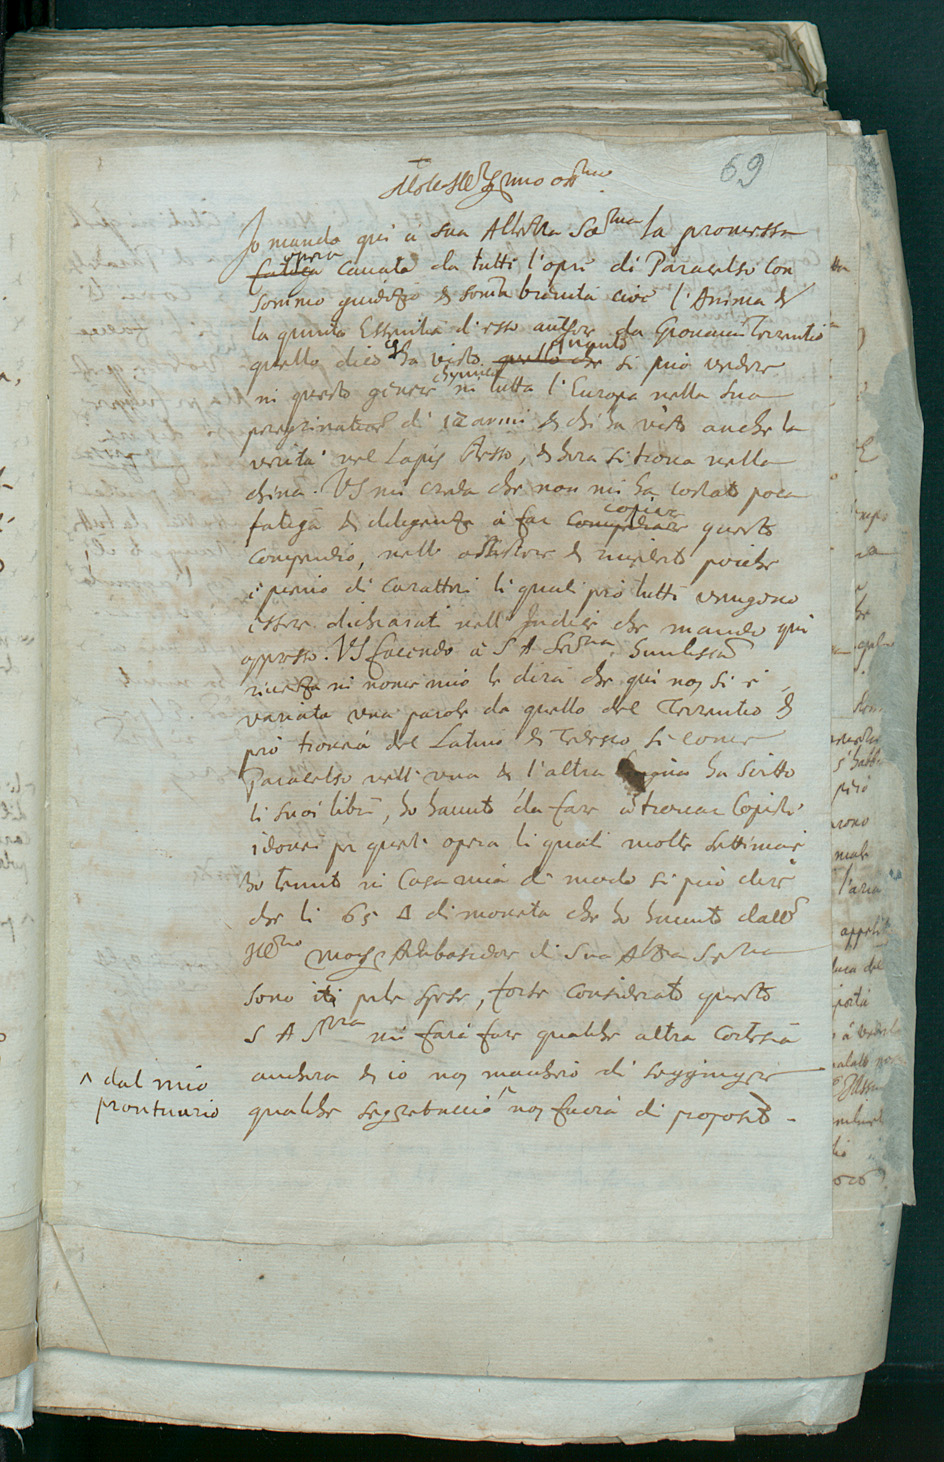 69
Molto Ill^re S^r mio oss^mo
Io mando qui a sua Altezza Se^ma la promessa
opera
cauata da tutti l'opri di Paracelso con
sommo giuditio & somma breuita cioe l'Anima &
la quinta Essentia d'esso authore da Giouanni Terrentio
quello dico ha visto quanto si può vedere
in questo genere chymico in tutta l'Europa nella sua
peregrinatione di 12 anni & chi ha visto anche la
verita nel Lapis stesso, & hora si troua nella
china. VS mi creda che non mi ha costato poca
fatiga & diligenza a far copiar questo
compendio, nelle & poiche
è pieno di caratteri li quali però tutti vengono
essere dichiarati nell'Indice che mando qui
appresso. VS facendo à S A Ser^ma humilissima
riuerenza in nome mio le dirà che qui non si è
variata vna parola da quello del Terrentio &
però trouerà del Latino & Tedesco si come
Paracelso nell'vna & l'altra lingua ha scritto
li suoi libri, ho hauuto da fare à trouar Copisti
idonei per questa opera li quali molte settimane
ho tenuto in Casa mia di modo si può dire
che li 65 Δ di moneta che ho hauuto dall'
Ill^mo Ambasciator di Sua Altezza Ser^ma
sono iti per le spese, forse considerato questo
S A S^ma mi farà fare qualche altra cortesia
anchora & io non mancherò di soggiungere
^ dal mio
prontuario
qualche segretuccio ^ non fuora di proposito -